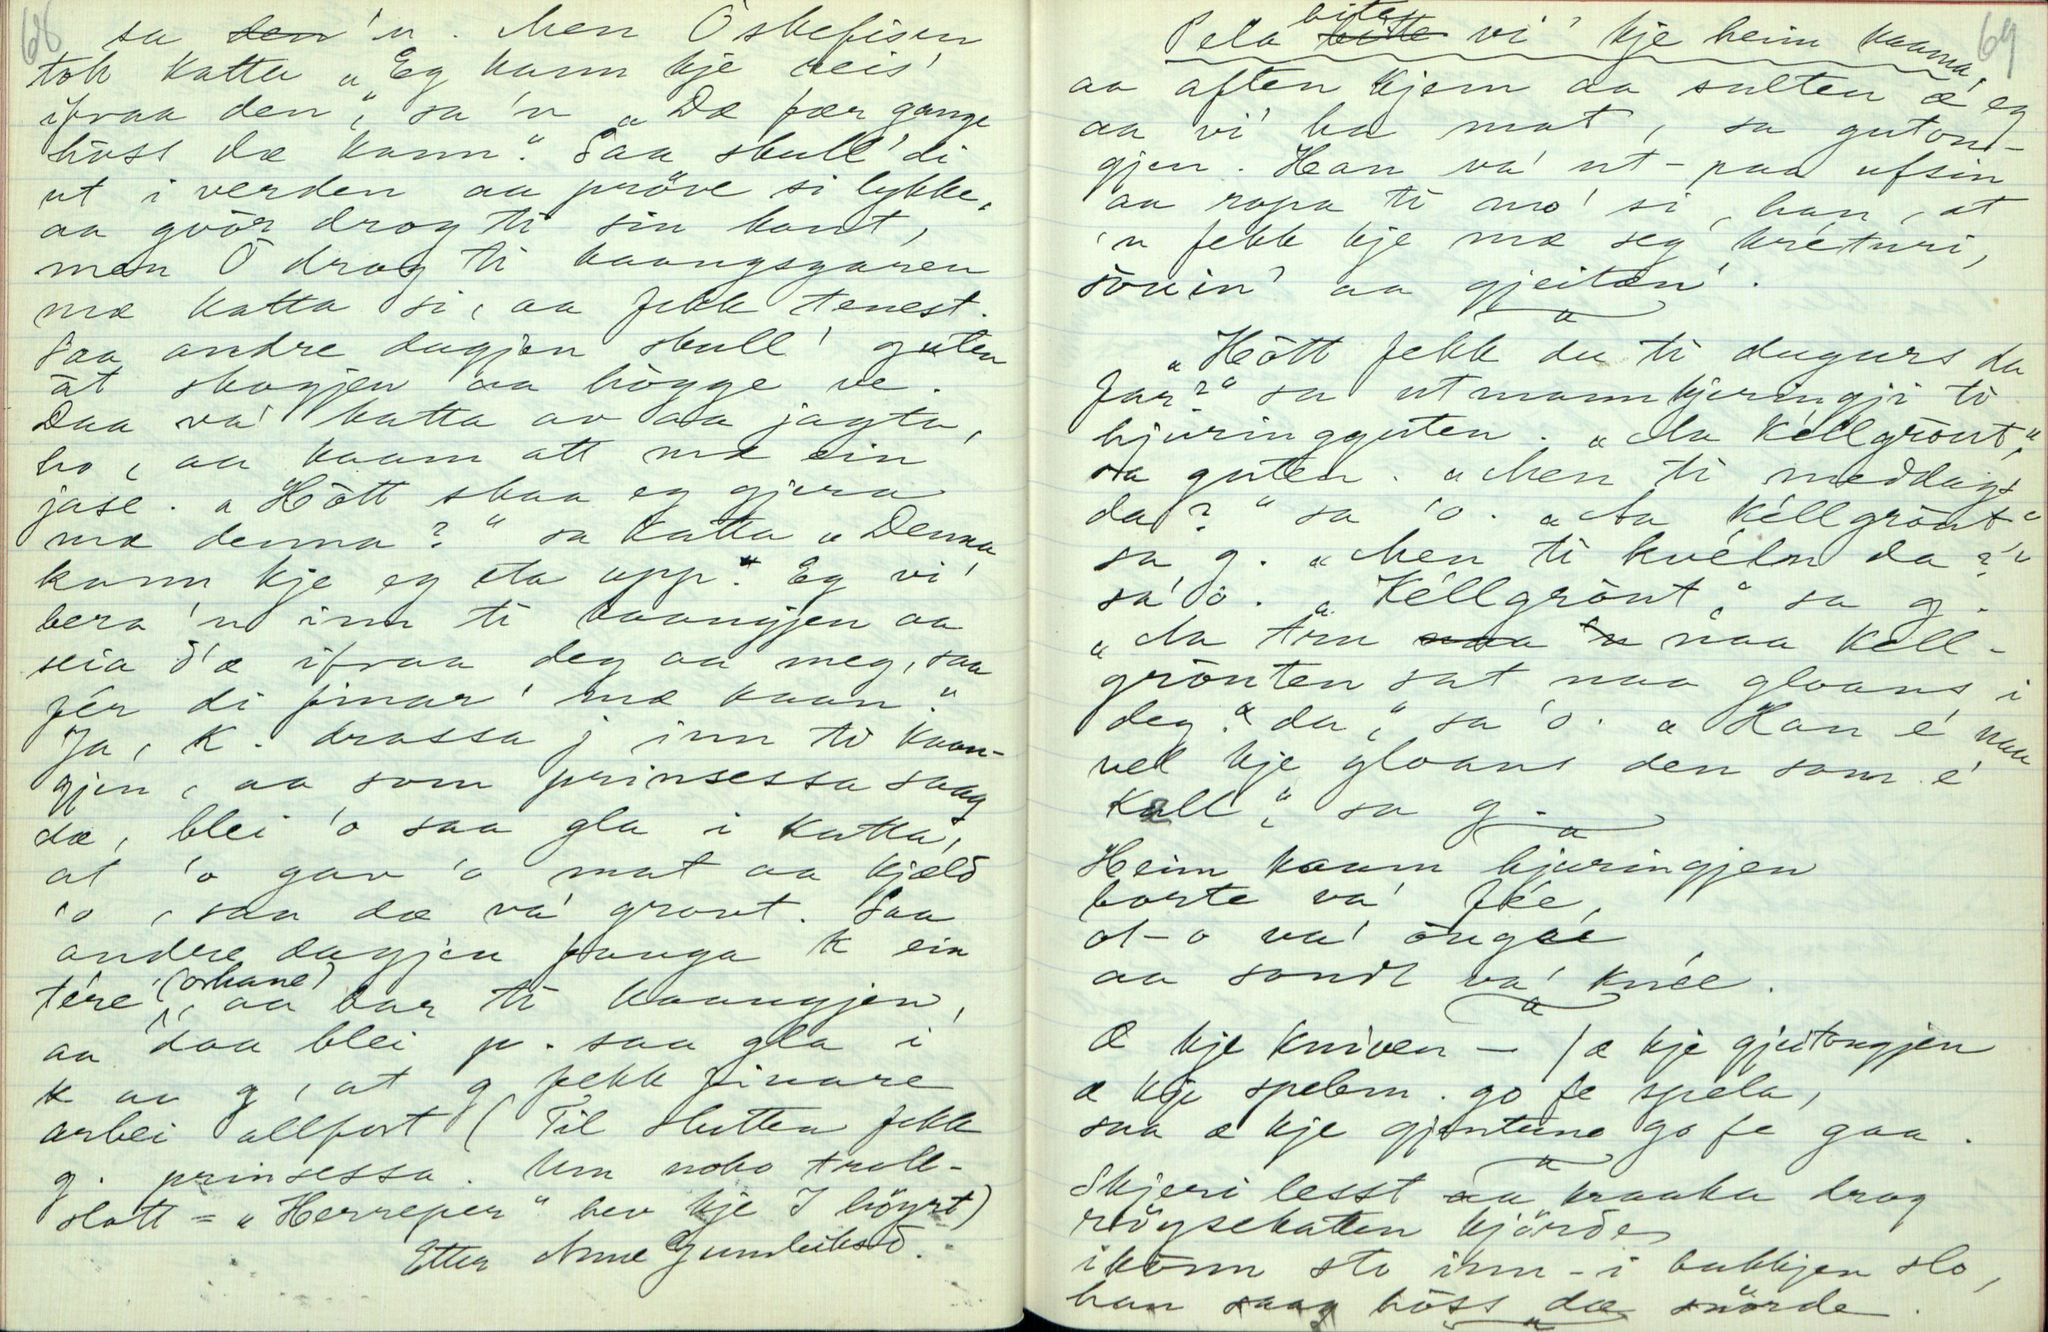 68
sa den 'n. Men Öskefisen
tok katta „Eg kann kje reis'
ifraa den," sa 'n „Dæ fær gange
höss dæ kann." Saa skull' di
ut i verden aa pröve si lykke,
aa gvör drog ti sin kant,
men Ö drog ti kaangsgaren
mæ katta si, aa fekk tenest.
Saa andre dagjen skull' guten
åt skogjen aa högge ve.
Daa va' katta av aa jagta,
ho, aa kaam att mæ ein
jase. „Hött skaa eg gjera
mæ denna?" sa katta „Denna
kann kje eg eta upp." Eg vi'
bera 'n inn ti kaangjen aa
seia d'æ ifraa deg aa meg, saa
fér di finar' mæ kaan."
Ja, K. drassa j inn ti kaan-
gjen, aa som prinsessa saag
dæ, blei 'o saa gla i katta,
at 'o gav 'o mat aa kjælö
'o, saa dæ va' grovt. Saa
andre dagjen fanga K ein
tére' (orhane), aa bar ti kaangjen,
aa daa blei p. saa gla i
K aa g, at g fekk finare
arbei allfort (Til slutten fekk
g. prinsessa. Um noko troll-
slott = „Herreper" hev kje I höyrt)
Etter Anne Gunleiksd.
69
Pela bitte bites vi' kje heim kaama,
aa aften kjem aa sulten æ eg
aa vi' ha mat, sa guton-
gjen. Han va' ut-paa ufsin
aa ropa ti mo' si, han, at
'n fekk kje mæ seg kréturi,
söuin' aa gjeitan'.
„Hött fekk du ti dugurs da
far?" sa utmannkjeringji ti
hjuringguten. „Aa kéllgröut,"
sa guten. „Men ti meddags
da?" sa 'o. „Aa kéllgröut"
sa g. „Men ti kvéln da?"
sa 'o. „Kéllgröut," sa g.
„Aa trn saa 'n naa kéll-
gröuten sat naa gloans i
deg da," sa 'o. „Han é' naa
vel kje gloans den som é'
kall," sa g.
Heim kaam hjuringjen
borte va' féé,
ol-o va' öngæé
aa sondt va' knéé.
Æ kje kniven – / æ kje gjeitongjen
æ kje spelem. go fe spela,
saa æ kje gjentune go fe gaa.
Skjeri lesst aa kraaka drog
röysekatten kjörde
ikönn sto inn-i bakkjen slo,
han saag höss dæ snörde.